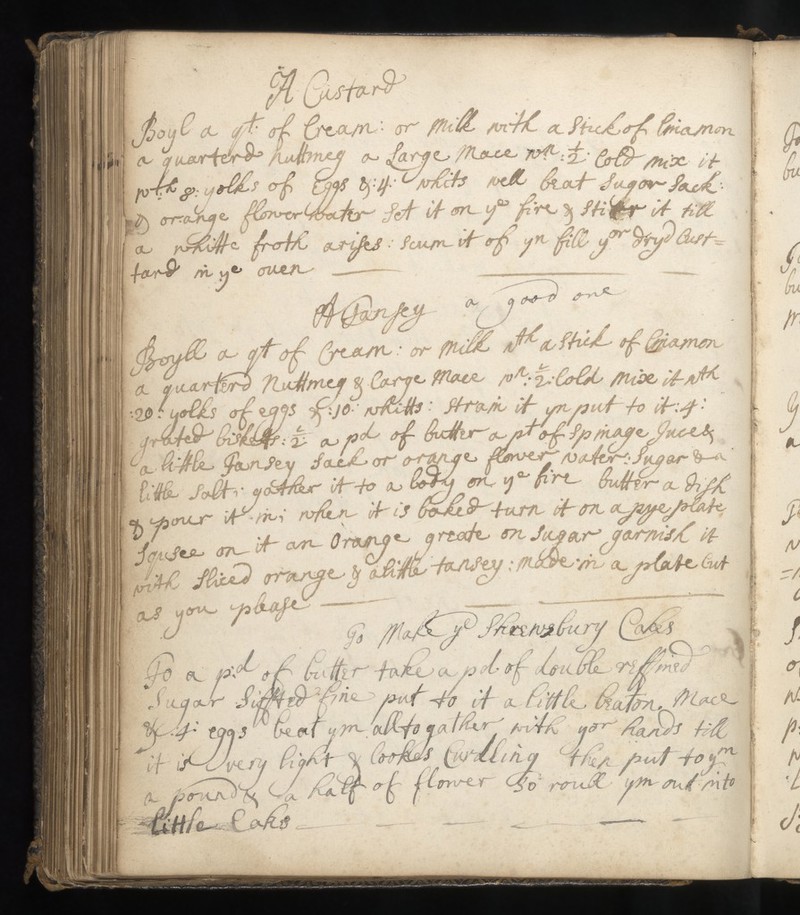 A Custard
Boyl a qt: of Cream: or Milk with a Stick of Cinamon
a quarterd nuttmeg a Large Mace wn: ½: Cold mix it
wth 8: yolks of Eggs &: 4: whits well beat Sugor Sack:
& orange flower water Set it on ye fire & Stirr it till
a whitte froth arises: scum it of yn fill yor dryd Cust=
tard in ye ouen
A Tansey a good one
Boyll a qt of Cream: or milk wth a Stick of Cinamon
a quarterd Nuttmeg & Large Mace wn: ½: Cold mixe it wth
:20: yolks of eggs &: 10: whitts: strain it yn put to it: 4:
grated biskets: ½ a pd of butter a pt of Spinage Juce &
a little Tansey Sack or orange flower water: Sugar & a
little Salt: gather it to a body on ye fire butter a dish
& pour it in; when it is baked turn it on a pye plate,
Squsee on it an Orange greate on Sugar garnish it
with Sliced orange & a little tansey: made in a plate Cut
as you please
To Make ye Shrewsbury Cakes
To a pd of butter take a pd of double reffined
Sugar Siffted fine put to it a little beaton Mace
& 4: eggs beat ym alltogather with yor hands till
it is very light & lookes Curdling then put to ym
a pound & a half of flower So roull ym out into
little Caks